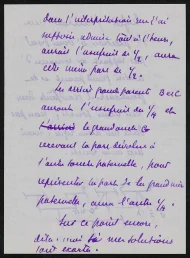 Dans l'interprétation que j'ai
supposé admise tout à l'heure,
aurait l'usufruit de 1/2, aura
cette même part de 1/2.
Les arrière grands parents B et C
auront l'usufruit du 1/4 et
le grand oncle G
recevant la part dévolue à
l'autre souche paternelle, pour
représenter la part de la grand'mère
paternelle, aura l'autre 1/4.
Sur ce point encore,
dites-moi si mes solutions
sont exactes.